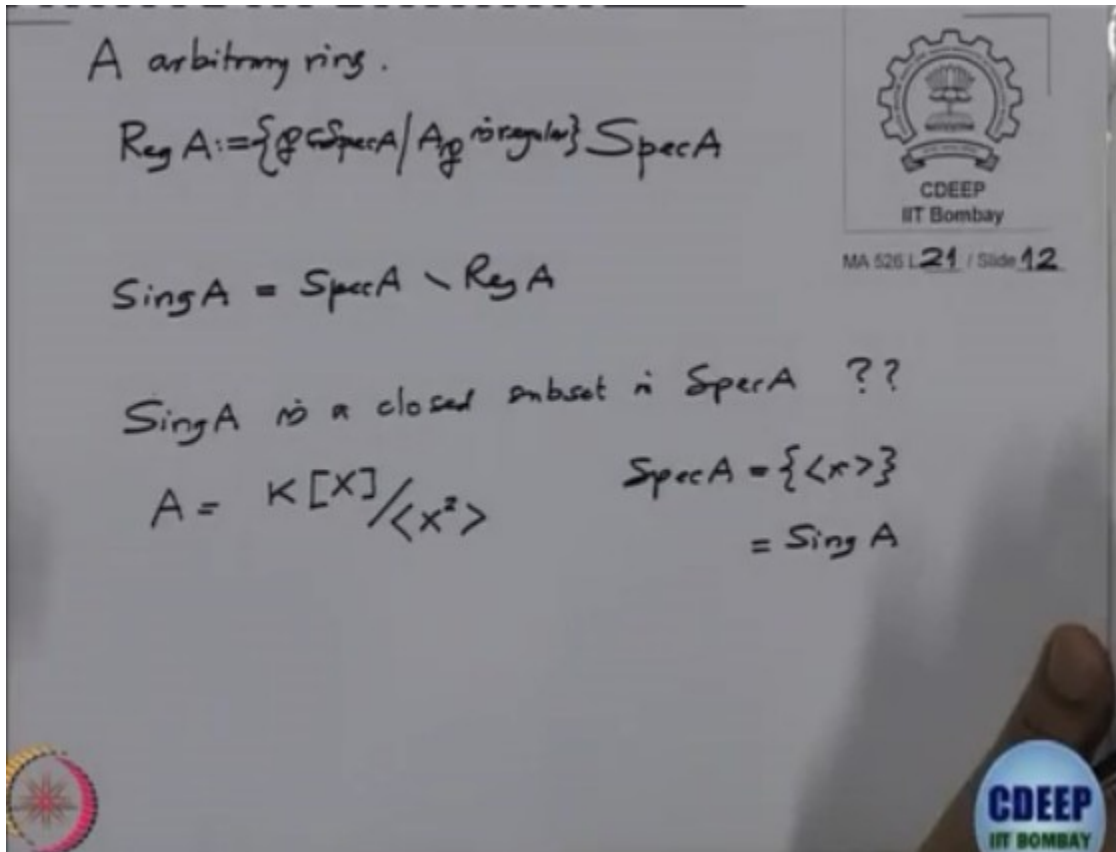 A arbitrary ring.
Reg A := {𝔭 ∈ Spec A / A_𝔭 is regular} Spec A
CDEEP
IIT Bombay
MA 526 L 21 / Slide 12
Sing A = Spec A \ Reg A
Sing A is a closed subset in Spec A ??
A = K[X]/<x²>
Spec A = {<x>}
= Sing A
CDEEP
IIT BOMBAY